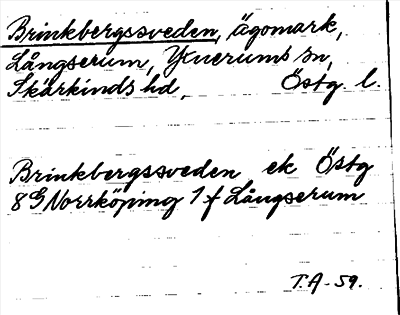 Brinkbergssveden, ägomark,
Långserum, Yxnerums sn,
Skärkinds hd, Östg. l.
Brinkbergssveden ek Östg
8G Norrköping 1 f Långserum
T.A - 59.